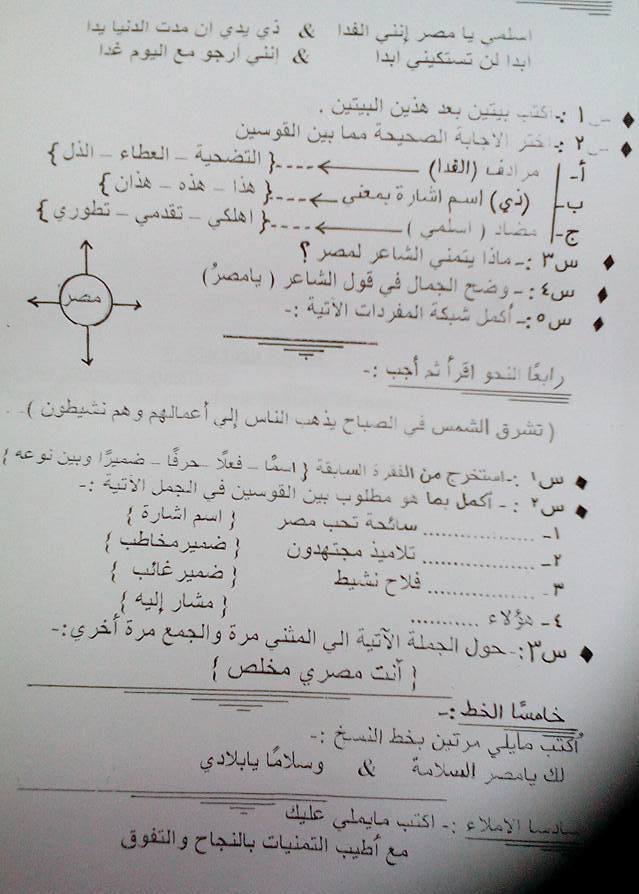 اسلمي يا مصر إنني الفدا & ذي يدي ان مدت الدنيا يدا
ابدا لن تستكيني أبدا & إنني أرجو مع اليوم غدا
س١ :- اكتب بيتين بعد هذين البيتين .
س٢ :- اختر الاجابة الصحيحة مما بين القوسين
أ- مرادف (الفدا) ----{ التضحية – العطاء – الذل }
ب- (ذي) اسم اشارة بمعنى ----{ هذا – هذه – هذان }
ج- مضاد ( اسلمي ) ----{ اهلكي – تقدمي – تطوري }
س٣ :- ماذا يتمني الشاعر لمصر ؟
س٤ :- وضح الجمال في قول الشاعر ( يامصرُ)
س٥ :- أكمل شبكة المفردات الآتية :-
مصر
رابعًا النحو اقرأ ثم أجب :-
( تشرق الشمس في الصباح يذهب الناس إلى أعمالهم وهم نشيطون )
س١ :- استخرج من الفقرة السابقة { اسمًا – فعلًا – حرفًا – ضميرًا وبين نوعه }
س٢ :- أكمل بما هو مطلوب بين القوسين في الجمل الآتية :-
١- ................ سائحة تحب مصر { اسم اشارة }
٢- ................ تلاميذ مجتهدون { ضمير مخاطب }
٣- ................ فلاح نشيط { ضمير غائب }
٤- هؤلاء ........... { مشار إليه }
س٣ :- حول الجملة الآتية الي المثني مرة والجمع مرة أخري:-
{ أنت مصري مخلص }
خامسًا الخط :-
أكتب مايلي مرتين بخط النسخ :-
لك يامصر السلامة & وسلامًا يابلادي
سادسا الاملاء :- اكتب مايملي عليك
مع أطيب التمنيات بالنجاح والتفوق